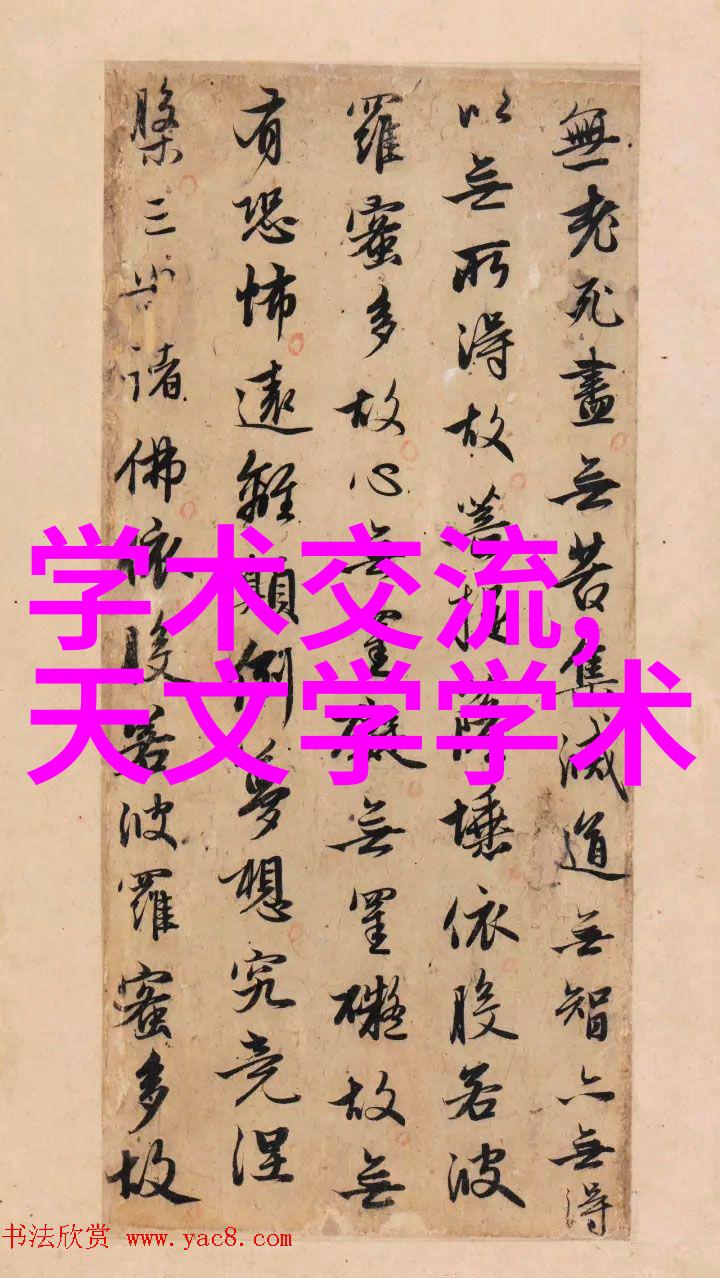 無老死盡無苦集滅道無智亦無得
以無所得故菩提薩埵依般若波
羅蜜多故心無罣礙無罣礙故無
有恐怖遠離顛倒夢想究竟涅
槃三世諸佛依般若波羅蜜多故
学术交流,
天文学学术
书法欣赏 www.yac8.com